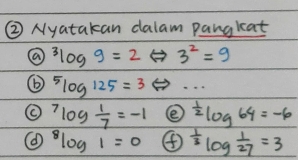 ② Nyatakan dalam pangkat
ⓐ ³log 9 = 2 ⇔ 3² = 9
ⓑ ⁵log 125 = 3 ⇔ ...
ⓒ ⁷log 1/7 = -1 ⓔ ^½log 64 = -6
ⓓ ⁸log 1 = 0 ⓕ ^⅓log 1/27 = 3